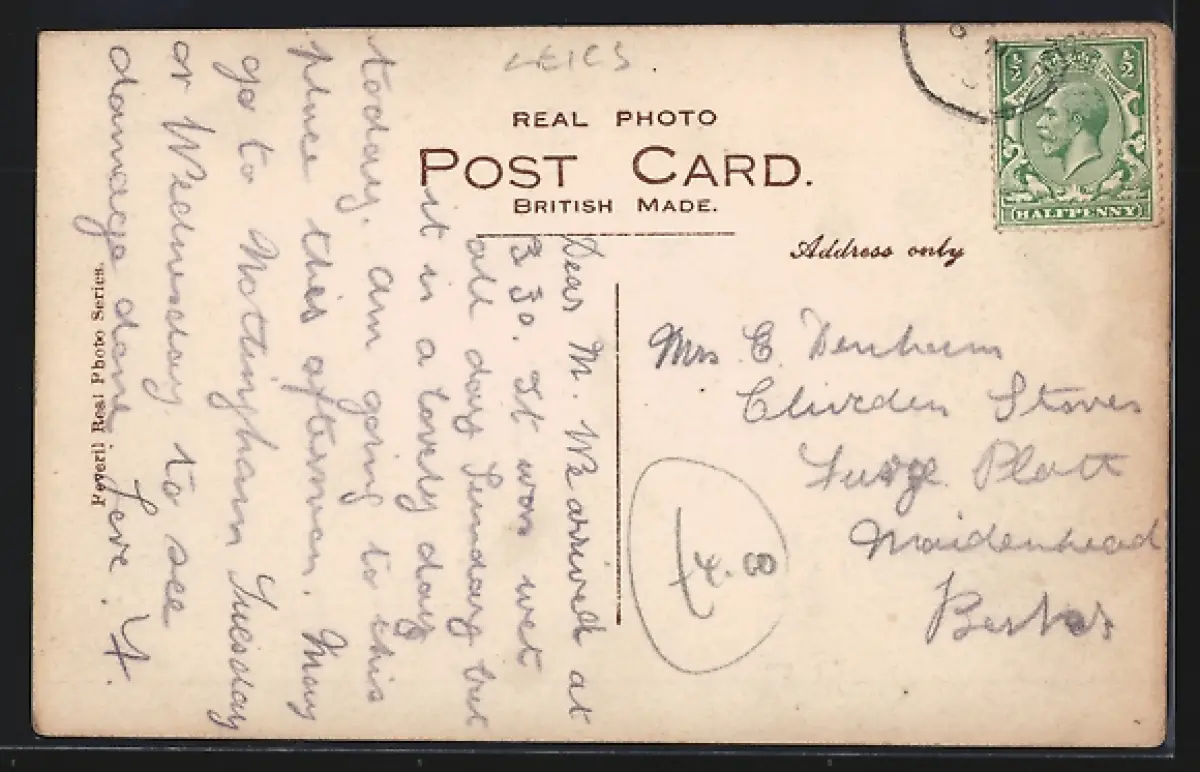 LEICS.
REAL PHOTO
POST CARD.
BRITISH MADE.
½ ½
HALFPENNY
Address only
Dear M. We arrived at
3 30. It was wet
all day Sunday but
it is a lovely day
today. am going to this
place this afternoon. May
go to Nottingham Tuesday
or Wednesday to see
damage done. Love. F.
Mrs E Denham
Clivden Stores
Furze Platt
Maidenhead
Berks
Peveril Real Photo Series.